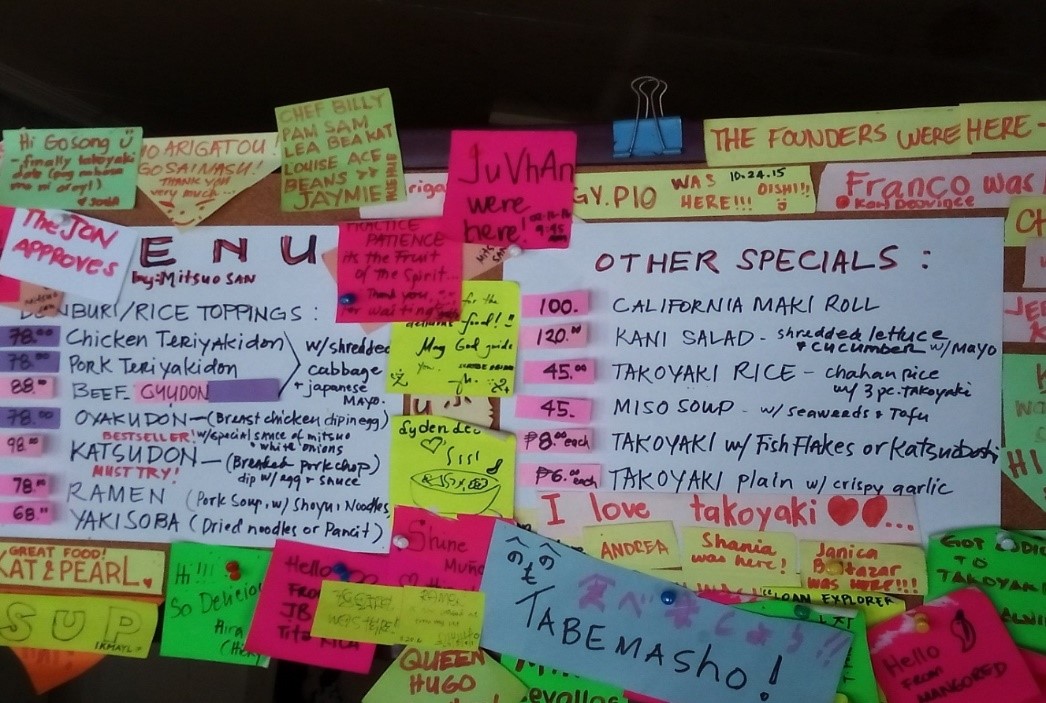 Hi Gosong
- finally takoyaki
ARIGATOU!
GOSAIMASU!
THANK YOU
very much...
CHEF BILLY
PAM SAM
LEA BEA KAT
LOUISE ACE
BEANS
JAYMIE
JuVhAn
were
here!
GY.PIO WAS HERE!!!
10.24.15
OISHI!!
THE FOUNDERS WERE HERE -
Franco was
The JON
APPROVES
ENU
by: MITSUO SAN
PRACTICE
PATIENCE
its the Fruit
of the Spirit...
Thank you
for waiting
/RICE TOPPINGS :
78.00 Chicken Teriyakidon
78.00 Pork Teriyakidon
88.00 BEEF GYUDON
w/shredded
cabbage
+ japanese
MAYO.
78.00 OYAKUDON - (Breast chicken dip in egg)
BESTSELLER! w/special sauce of mitsuo
white onions
98.00 KATSUDON - (Breaded porkchop)
MUST TRY! dip w/ egg + sauce
78.00 RAMEN (Pork Soup, w/ Shoyu, Noodles,
68.00 YAKISOBA (Dried noodles or Pancit)
for the
food!
May God guide
you
OTHER SPECIALS :
100. CALIFORNIA MAKI ROLL
120.00 KANI SALAD - shredded lettuce
+ CUCUMBER w/MAYO
45.00 TAKOYAKI RICE - chahan rice
w/ 3 pc. TAKOYAKI
45. MISO SOUP - w/ seaweeds & Tofu
₱8.00 each TAKOYAKI w/ Fish Flakes or Katsuboshi
₱6.00 each TAKOYAKI plain w/ crispy garlic
I love takoyaki ❤❤...
ANDREA
Shania
was here!
Janica
Baltazar
was HERE!!!
GREAT FOOD!
KAT & PEARL.
SUP
Hi!!!
So Delicio
Hello
FROM
JB
Tita
Shune
へのへの
も
食べましょう!!
TABEMASHO!
LOAN EXPLORER
GOT
TO
TAKOYAKI
QUEEN
HUGO
evallos
Hello
FROM
MANGORED